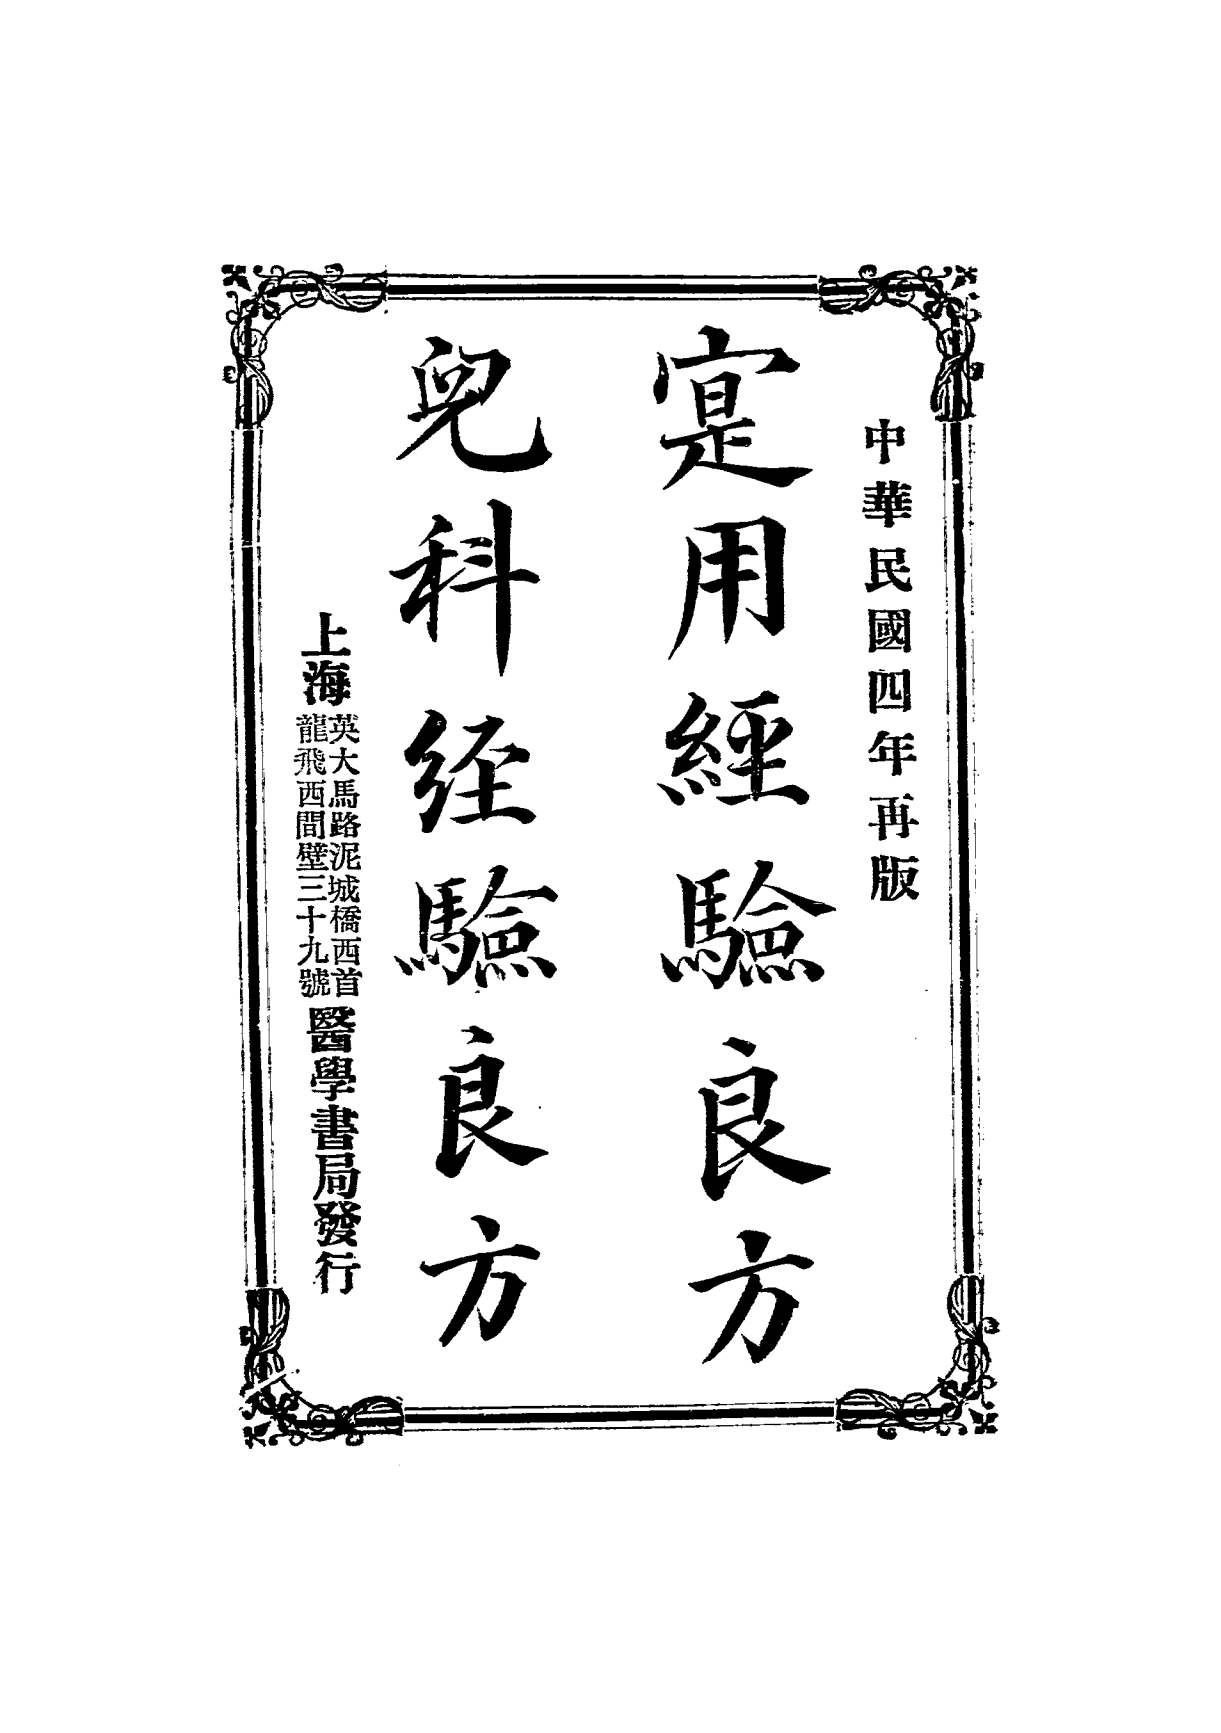 中華民國四年再版
寔用經驗良方
兒科经驗良方
上海
英大馬路泥城橋西首
龍飛西間壁三十九號
醫學書局發行